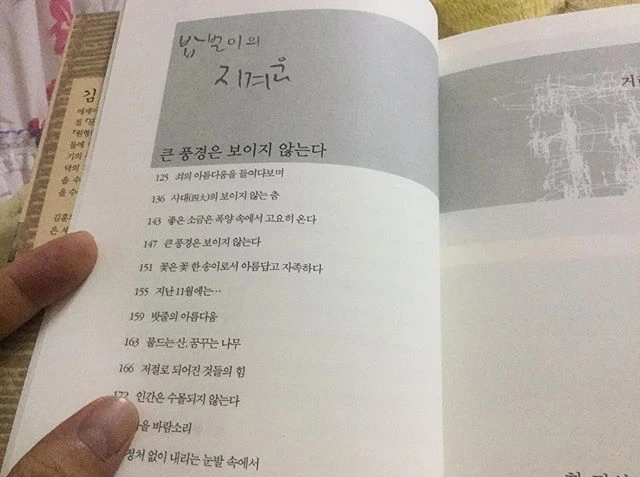 밥벌이의
지겨움
큰 풍경은 보이지 않는다
125 쇠의 아름다움을 들여다보며
136 사대(四大)의 보이지 않는 춤
143 좋은 소금은 폭양 속에서 고요히 온다
147 큰 풍경은 보이지 않는다
151 꽃은 꽃 한 송이로서 아름답고 자족하다
155 지난 11월에는…
159 밧줄의 아름다움
163 물드는 산, 꿈꾸는 나무
166 저절로 되어진 것들의 힘
172 인간은 수몰되지 않는다
바람소리
정처 없이 내리는 눈발 속에서